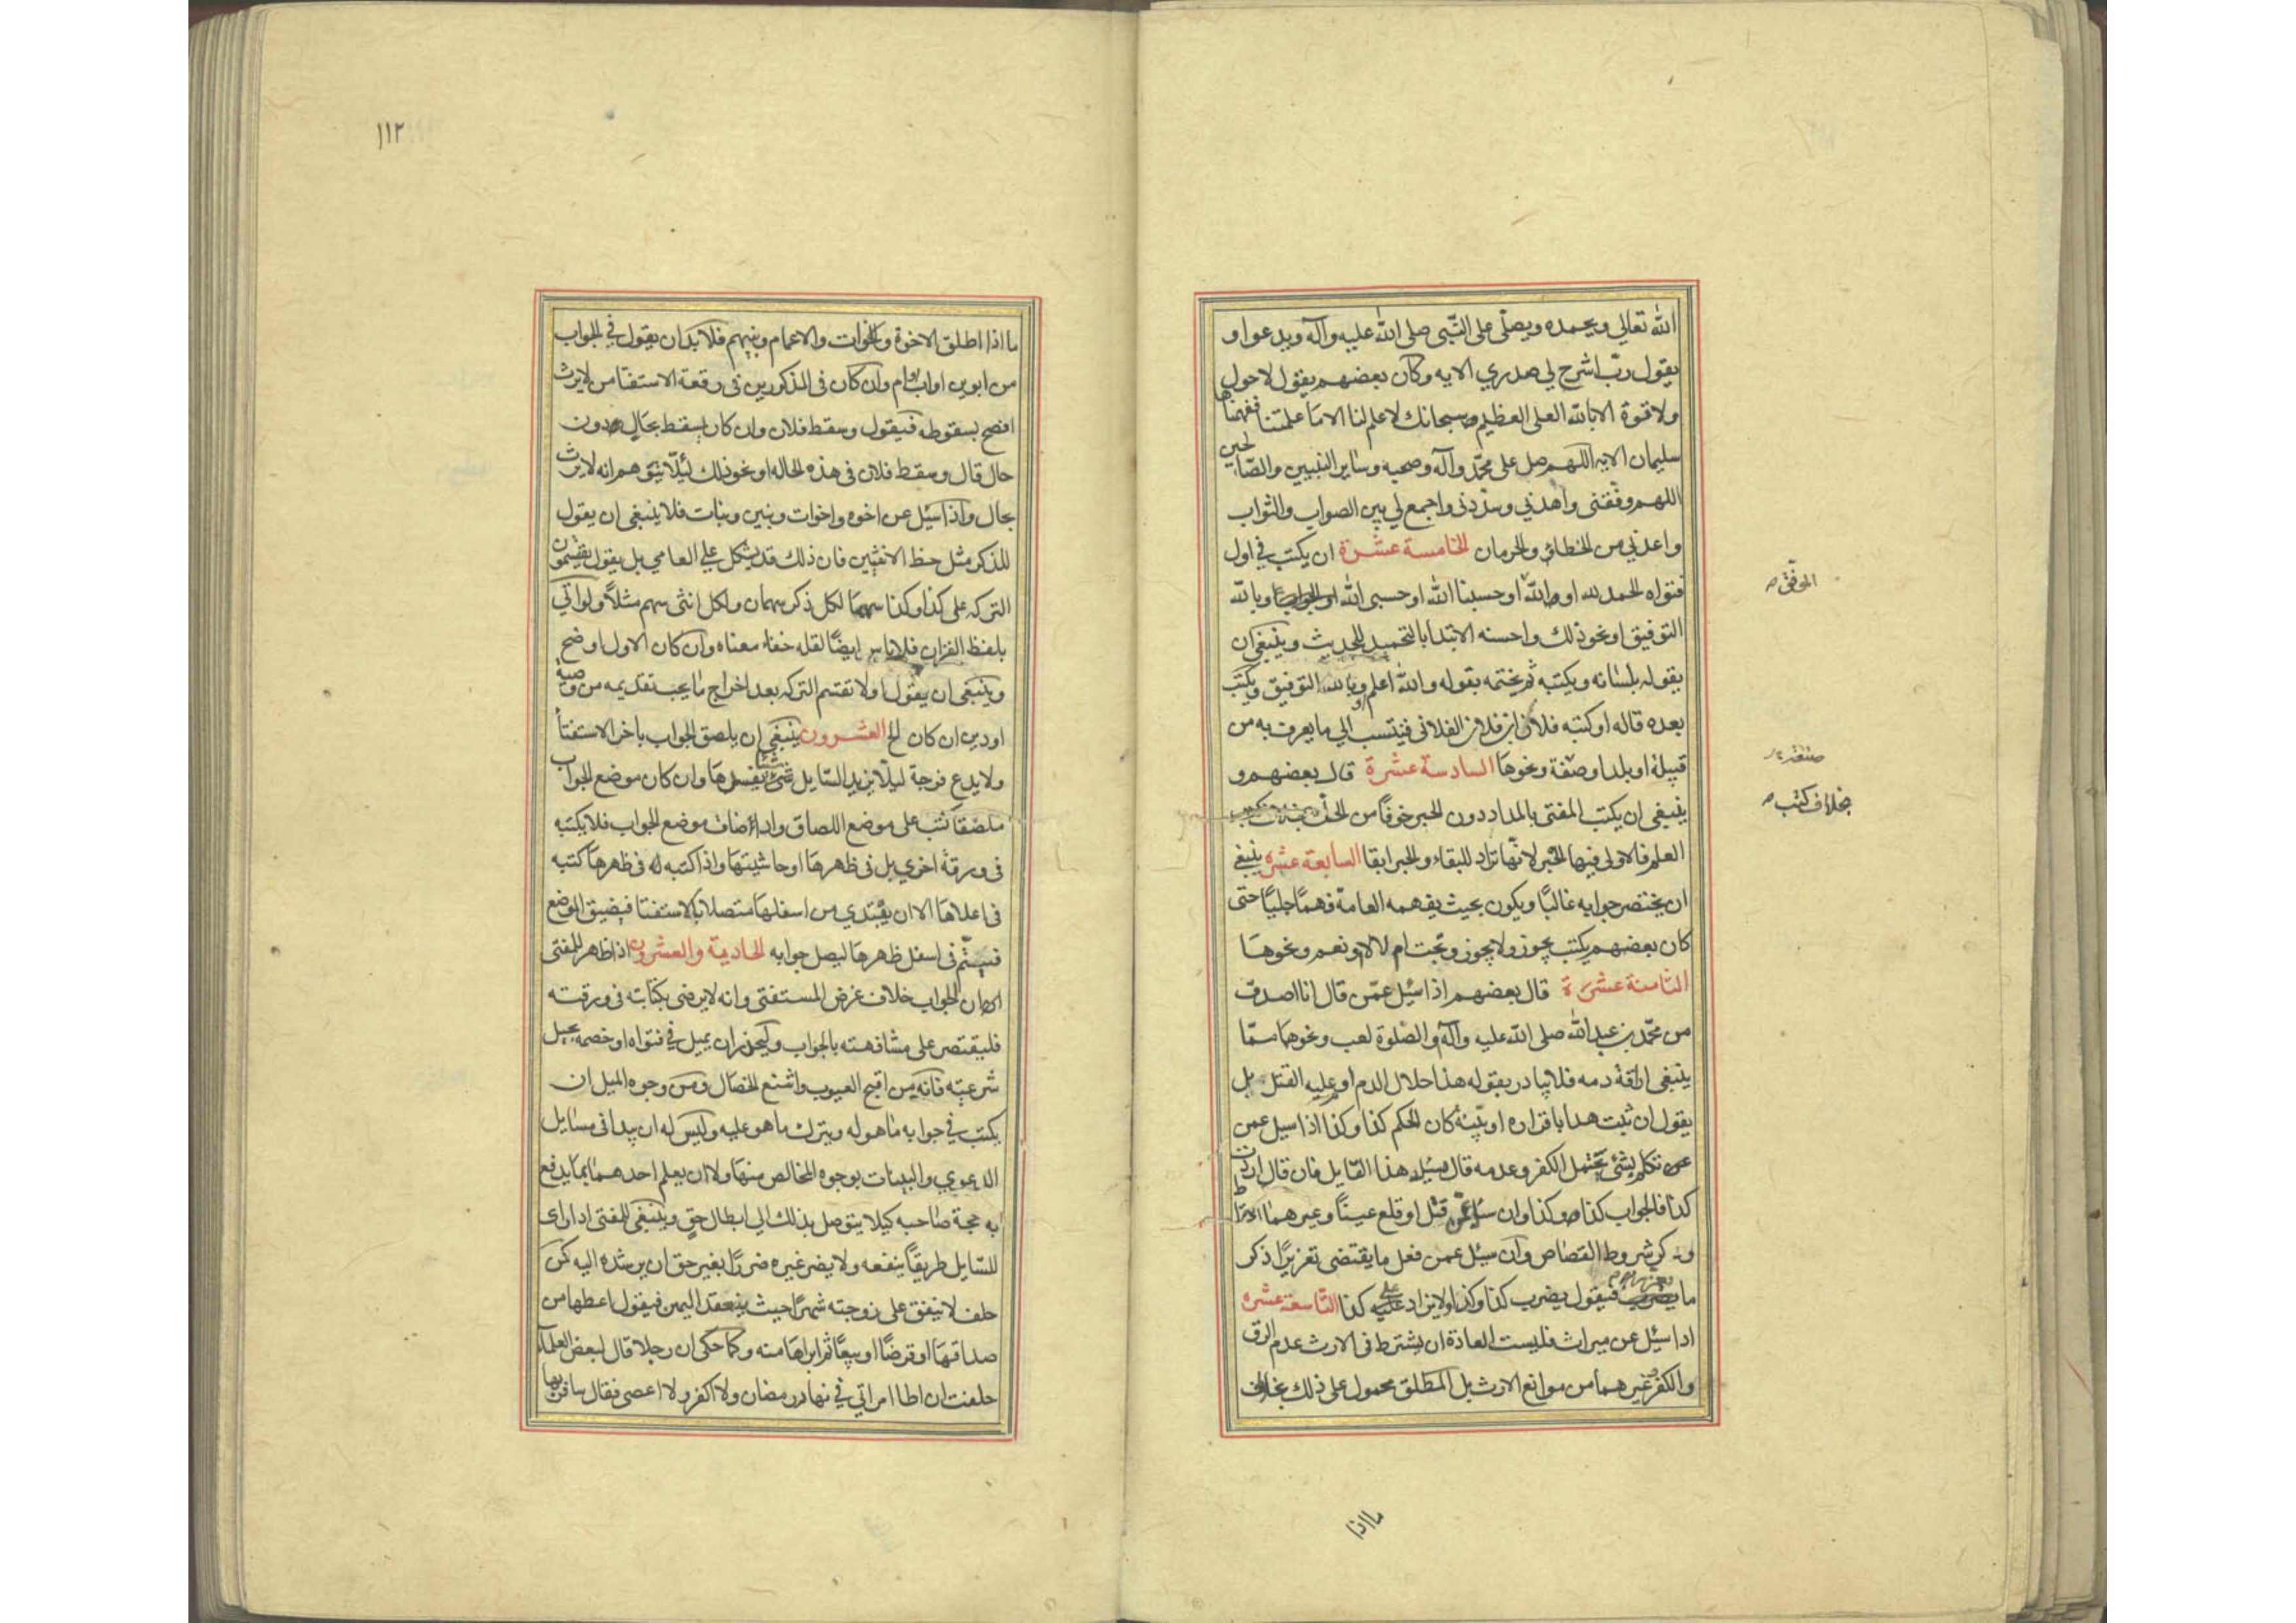 الله تعالى ويحمده ويصلّي على النّبي صلى الله عليه وآله ويدعوا و
يقول ربّ اشرح لي صدري الآيه وكان بعضهم يقول لا حول
ولا قوة الا بالله العلى العظيم سبحانك لا علم لنا الا ما علمتنا ففهمناها
سليمان الآيه اللهم صل على محمّد وآله وصحبه وساير النبيين والصّالحين
اللهم وفقنى واهدني وسدّدنى واجمع لي بين الصواب والثواب
واعذني من الخطاؤ والحرمان الخامسة عشرة ان يكتب في اول
فتواه الحمد لله او الله او حسبنا الله او حسبى الله او وبالله
التوفيق او نحو ذلك واحسنه الابتدا بالتحميد للحديث وينبغي ان
يقوله بلسانه ويكتبه ثم يختمه بقوله والله اعلم او بالله التوفيق ويكتب
بعده قاله او كتبه فلان ابن فلان الفلانى فينتسب الي ما يعرف به من
قبيلة او بلد او صفة ونحوها السادسة عشرة قال بعضهم و
ينبغى ان يكتب المفتى بالمداد دون الحبر خوفًا من الحك
العلم فالاولى فيها الحبر لانّها تراد للبقاء والحبر ابقا السابعة عشره ينبغي
ان يختصر جوابه غالبًا ويكون بحيث يفهمه العامة فهمًا جليًّا حتى
كان بعضهم يكتب يجوز ولا يجوز وتحت ام لا لا و نعم ونحوها
الثامنة عشرة قال بعضهم اذا سئل عمّن قال انا اصدق
من محمّد بن عبد الله صلى الله عليه وآله والصلوة لعب ونحوهما ممّا
ينبغى اراقة دمه فلا يبادر بقوله هذا حلال الدم او عليه القتل بل
يقول ان ثبت هذا باقراره او ببيّنة كان الحكم كذا وكذا اذا سيل عمن
تكلم بشئ يحتمل الكفر وعدمه قال يسئل هذا القايل فان قال اردت
كذا فالجواب كذا وكذا وان سئل عمّن قتل او قلع عينًا وغيرهما احتاط
وذكر شروط القصاص وان سيئل عمن فعل ما يقتضى تعزيرًا ذكر
ما يعزر به فيقول يضرب كذا وكذا ولا يزاد على كذا التّاسعة عشره
اذا سئل عن ميراث فليست العادة ان يشترط فى الارث عدم الرق
والكفر وغيرهما من موانع الارث بل المطلق محمول على ذلك بخلاف
المحقق ص
صنعة
بخلاف كتب ص
ما اذا
١١٢
ما اذا اطلق الاخوة والاخوات والاعمام وبنيهم فلا بدّ ان يقول في الجواب
من ابوين او اب او ام وان كان فى المذكورين فى رقعة الاستفتا من لا يرث
افصح بسقوطه فيقول وسقط فلان وان كان يسقط بحال دون
حال قال وسقط فلان فى هذه الحاله او نحو ذلك لئلّا يتوهم انه لا يرث
بحال واذا سئل عن اخوه واخوات وبنين وبنات فلا ينبغى ان يقول
للذكر مثل حظ الانثيين فان ذلك قد يشكل علي العامي بل يقول يقتسمون
التركه على كذا وكذا سهمًا لكل ذكر سهمان ولكل انثى سهم مثلًا ولو اتي
بلفظ القران فلا باس ايضًا لقله خفاء معناه وان كان الاول اوضح
وينبغى ان يقول اولا تقتسم التركه بعد اخراج ما يجب تقديمه من وصية
او دين ان كان الخ العشرون ينبغي ان يلصق الجواب باخر الاستفتا
ولا يدع فرجة ليلّا يزيد السّايل شيئًا يفسدها وان كان موضع الجواب
ملصقا كتب على موضع اللصاق واذا ضاق موضع الجواب فلا يكتبه
فى ورقة اخري بل فى ظهرها او حاشيتها واذا كتبه فى ظهرها كتبه
فى اعلاها الا ان يبتدي من اسفلها متصلا بالاستفتا فيضيق الموضع
فيتمّ فى اسفل ظهرها ليصل جوابه الحادية والعشرون اذا ظهر للمفتى
ان الجواب خلاف غرض المستفتى وانه لا يرضى بكتابته فى ورقته
فليقتصر على مشافهته بالجواب وليحذر ان يميل في فتواه او خصمه بحيل
شرعيّه فانه من اقبح العيوب واشنع الخصال ومن وجوه الميل ان
يكتب في جوابه ما هو له ويترك ما هو عليه وليس له ان يبدا فى مسايل
الدعوي والبينات بوجوه المخالص منها ولا ان يعلم احدهما بما يدفع
به حجة صاحبه كيلا يتوصل بذلك الي ابطال حق وينبغى للمفتى اذا راى
للسّايل طريقًا ينفعه ولا يضر غيره ضررًا بغير حق ان يرشده اليه كمن
حلف لا ينفق على زوجته شهرًا حيث ينعقد اليمين فيقول اعطها من
صداقها او قرضًا او بيعًا ثم ابراها منه وكما حكى ان رجلا قال لبعض العلماء
حلفت ان اطا امراتي في نهار رمضان ولا اكفر ولا اعصى فقال سافر بها